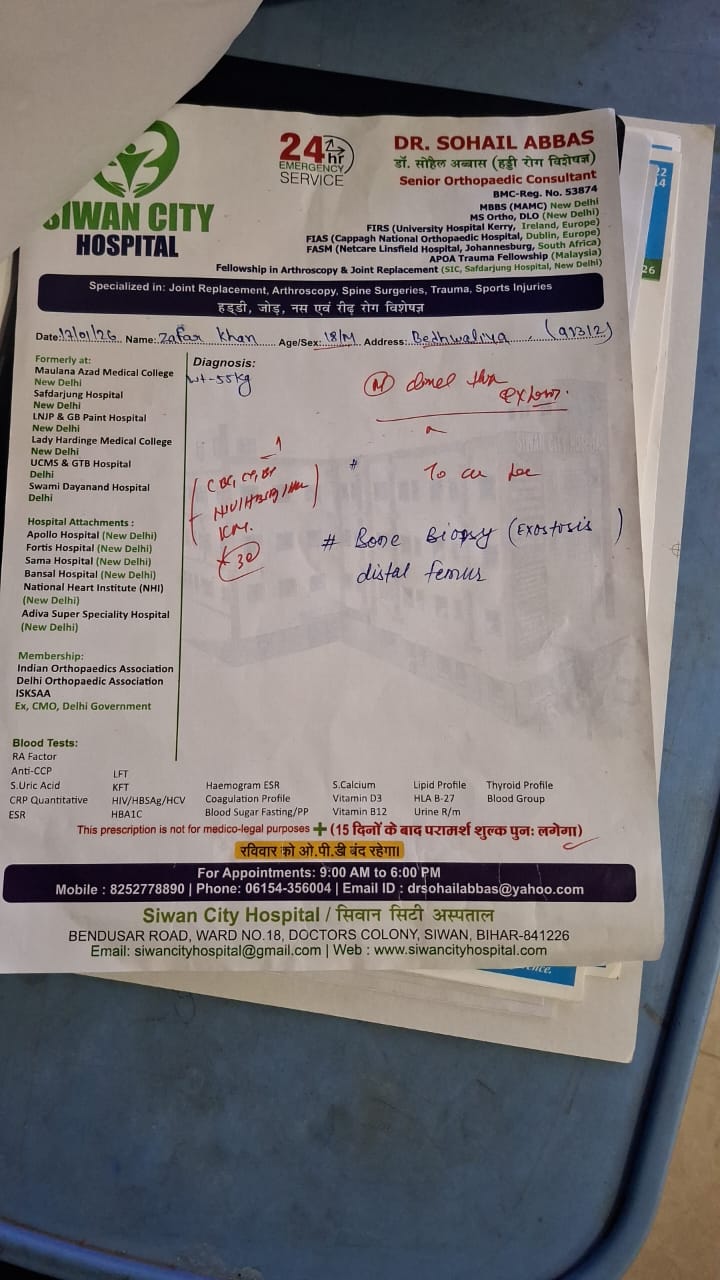 SIWAN CITY
HOSPITAL
24 hr
EMERGENCY
SERVICE
DR. SOHAIL ABBAS
डॉ. सोहैल अब्बास (हड्डी रोग विशेषज्ञ)
Senior Orthopaedic Consultant
BMC-Reg. No. 53874
MBBS (MAMC) New Delhi
MS Ortho, DLO (New Delhi)
FIRS (University Hospital Kerry, Ireland, Europe)
FIAS (Cappagh National Orthopaedic Hospital, Dublin, Europe)
FASM (Netcare Linsfield Hospital, Johannesburg, South Africa)
APOA Trauma Fellowship (Malaysia)
Fellowship in Arthroscopy & Joint Replacement (SIC, Safdarjung Hospital, New Delhi)
Specialized in: Joint Replacement, Arthroscopy, Spine Surgeries, Trauma, Sports Injuries
हड्डी, जोड़, नस एवं रीढ़ रोग विशेषज्ञ
Date: 17/01/26 Name: Zafar Khan Age/Sex: 18/M Address: Bedhwaliya (91312)
Formerly at:
Maulana Azad Medical College
New Delhi
Safdarjung Hospital
New Delhi
LNJP & GB Paint Hospital
New Delhi
Lady Hardinge Medical College
New Delhi
UCMS & GTB Hospital
Delhi
Swami Dayanand Hospital
Delhi
Hospital Attachments :
Apollo Hospital (New Delhi)
Fortis Hospital (New Delhi)
Sama Hospital (New Delhi)
Bansal Hospital (New Delhi)
National Heart Institute (NHI)
(New Delhi)
Adiva Super Speciality Hospital
(New Delhi)
Membership:
Indian Orthopaedics Association
Delhi Orthopaedic Association
ISKSAA
Ex, CMO, Delhi Government
Diagnosis:
wt-55kg
# Bone Biopsy (Exostosis)
distal femur
Blood Tests:
RA Factor
Anti-CCP
S.Uric Acid
CRP Quantitative
ESR
LFT
KFT
HIV/HBSAg/HCV
HBA1C
Haemogram ESR
Coagulation Profile
Blood Sugar Fasting/PP
S.Calcium
Vitamin D3
Vitamin B12
Lipid Profile
HLA B-27
Urine R/m
Thyroid Profile
Blood Group
This prescription is not for medico-legal purposes + (15 दिनों के बाद परामर्श शुल्क पुनः लगेगा)
रविवार को ओ.पी.डी बंद रहेगा।
For Appointments: 9:00 AM to 6:00 PM
Mobile : 8252778890 | Phone: 06154-356004 | Email ID : drsohailabbas@yahoo.com
Siwan City Hospital / सिवान सिटी अस्पताल
BENDUSAR ROAD, WARD NO.18, DOCTORS COLONY, SIWAN, BIHAR-841226
Email: siwancityhospital@gmail.com | Web : www.siwancityhospital.com